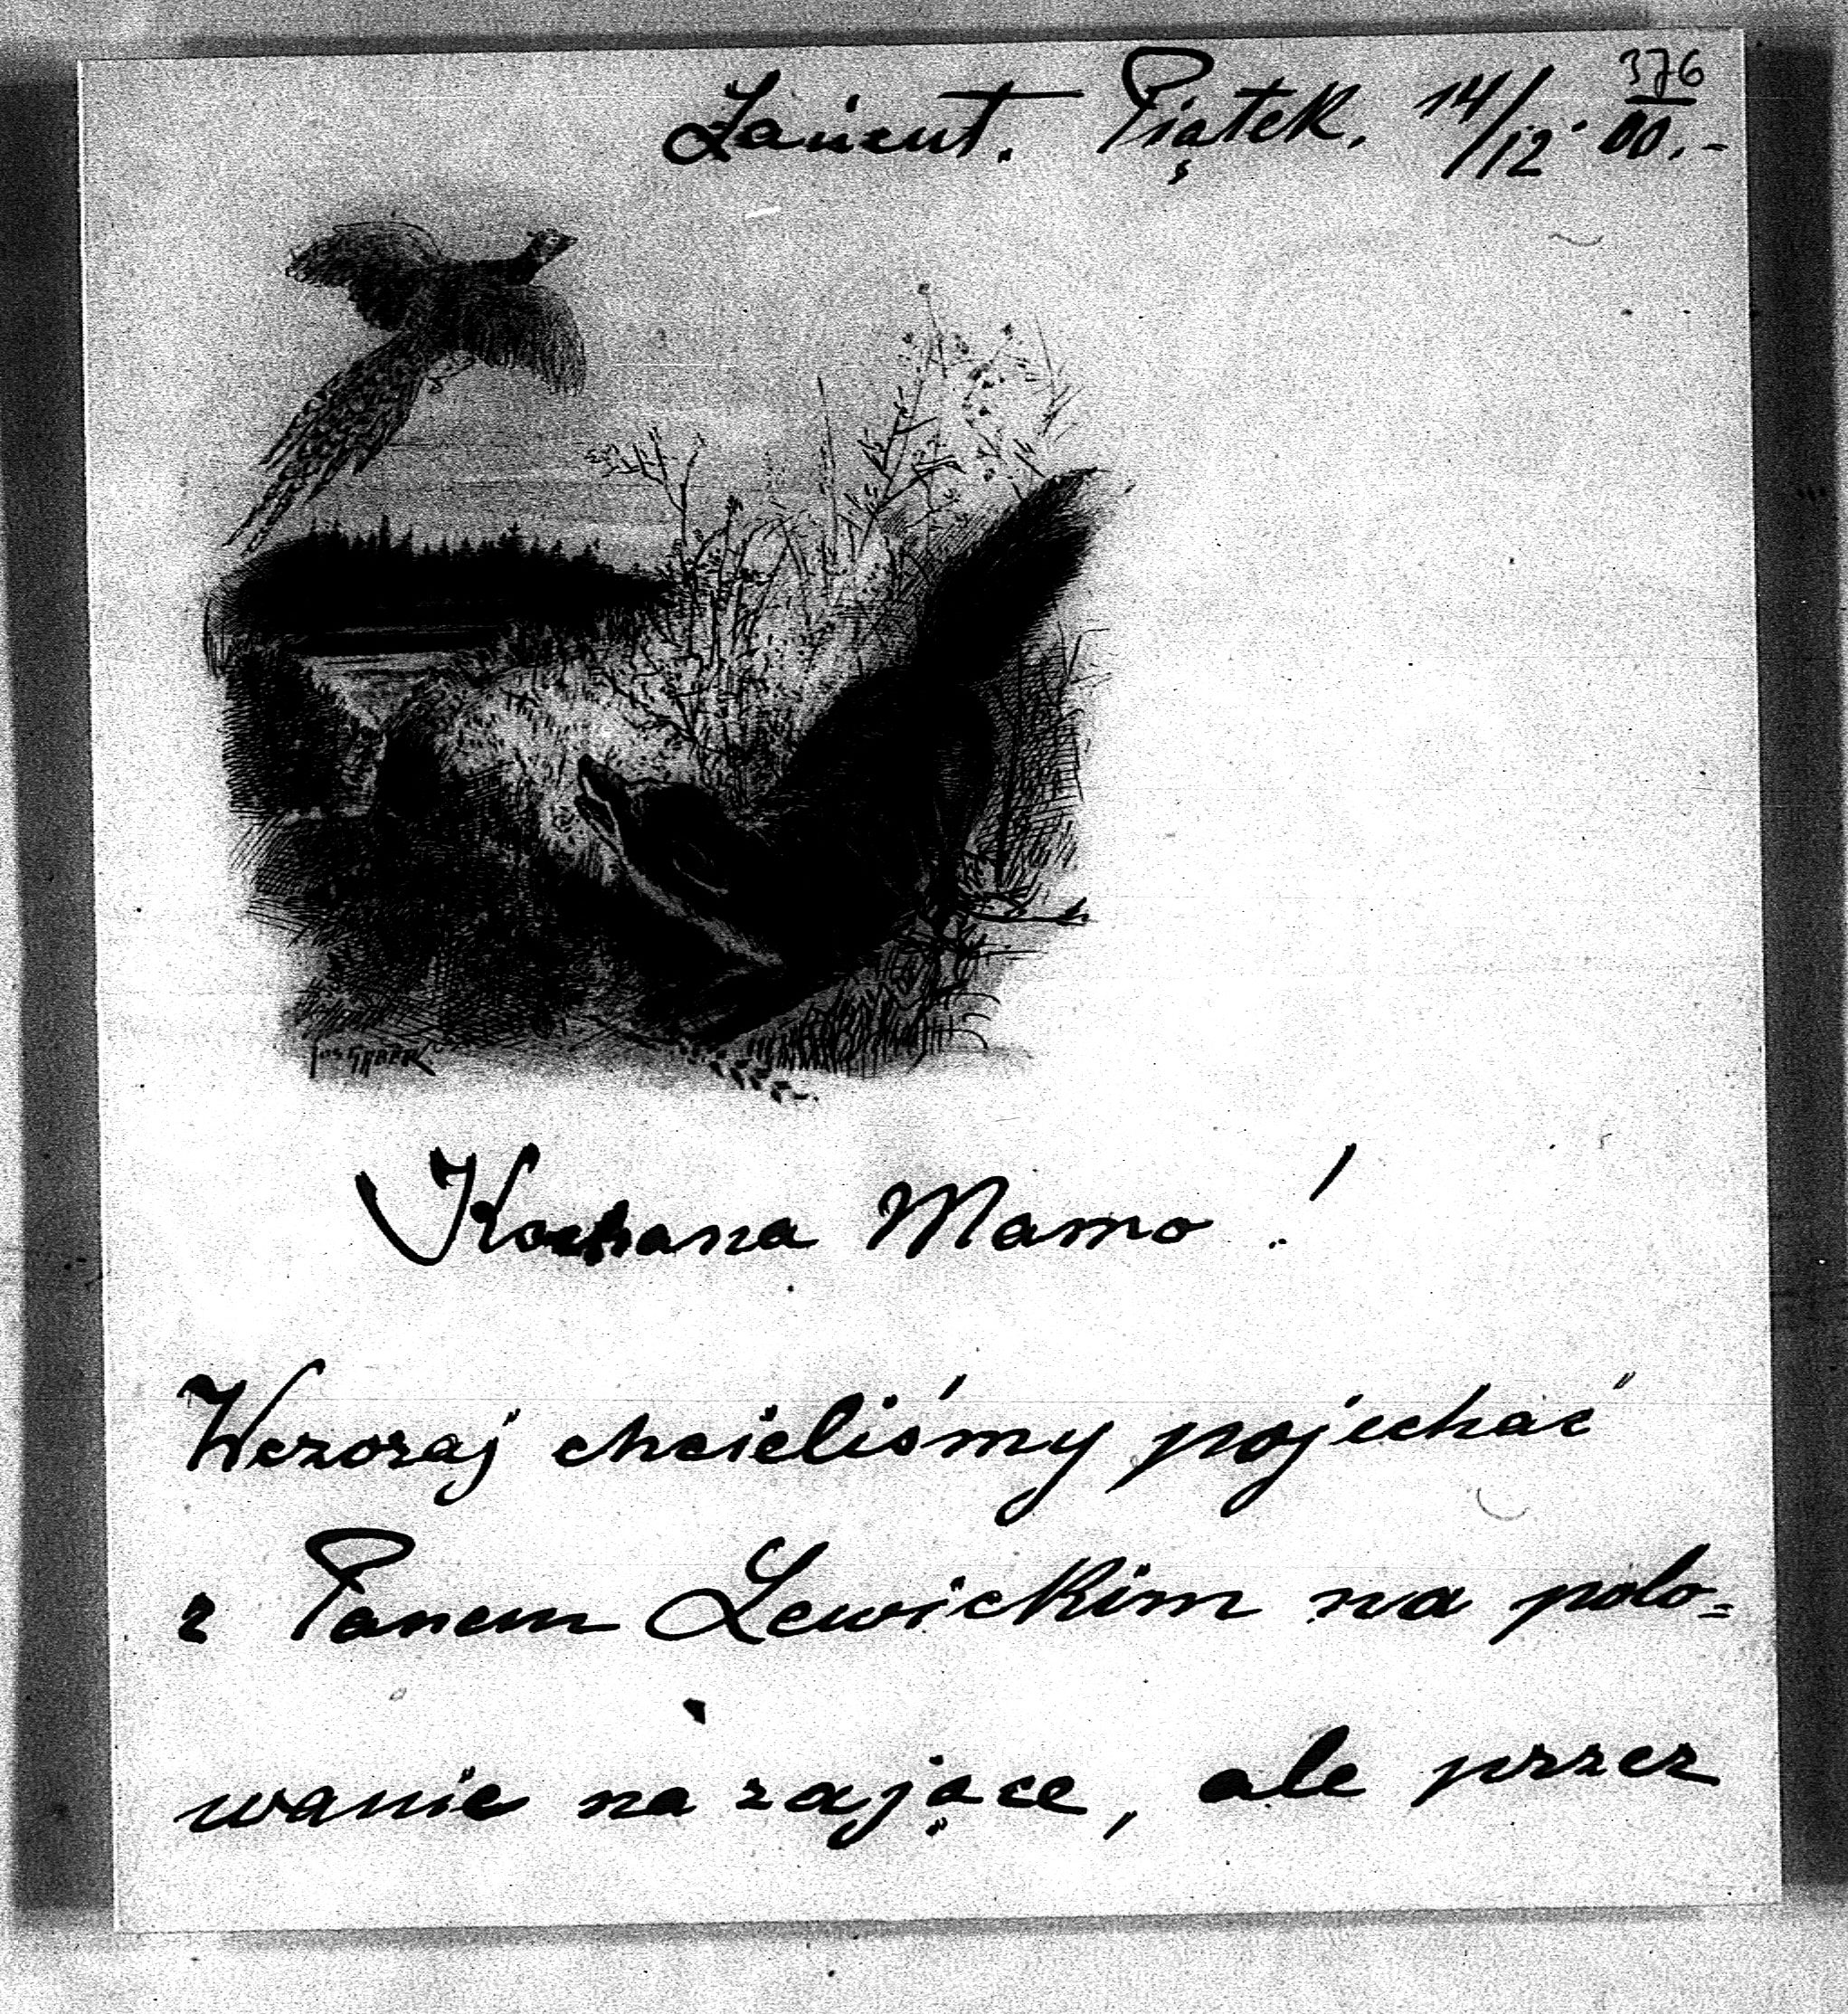 376
Łańcut. Piątek. 14/12. 00.-
Jos GABER
Kochana Mamo!
Wczoraj chcieliśmy pojechać
z Panem Lewickim na polo=
wanie na zające, ale przez